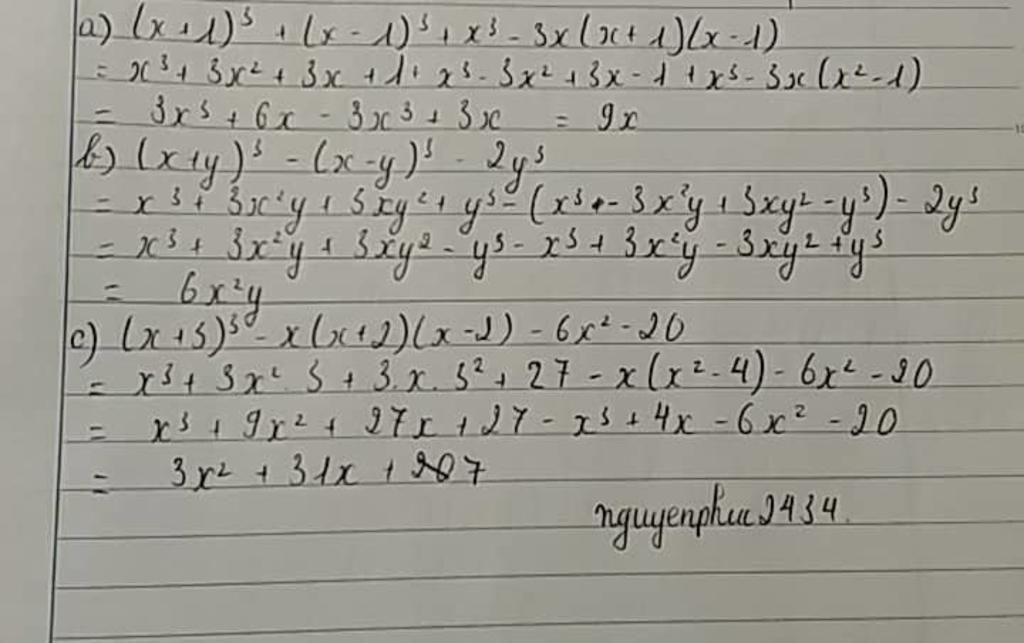 a) (x+1)³ + (x-1)³ + x³ - 3x(x+1)(x-1)
= x³ + 3x² + 3x + 1 + x³ - 3x² + 3x - 1 + x³ - 3x(x²-1)
= 3x³ + 6x - 3x³ + 3x = 9x
b) (x+y)³ - (x-y)³ - 2y³
= x³ + 3x²y + 3xy² + y³ - (x³ - 3x²y + 3xy² - y³) - 2y³
= x³ + 3x²y + 3xy² - y³ - x³ + 3x²y - 3xy² + y³
= 6x²y
c) (x+3)³ - x(x+2)(x-2) - 6x² - 20
= x³ + 3x². 3 + 3.x.3² + 27 - x(x²-4) - 6x² - 20
= x³ + 9x² + 27x + 27 - x³ + 4x - 6x² - 20
= 3x² + 31x + 7
nguyenphuc2434.